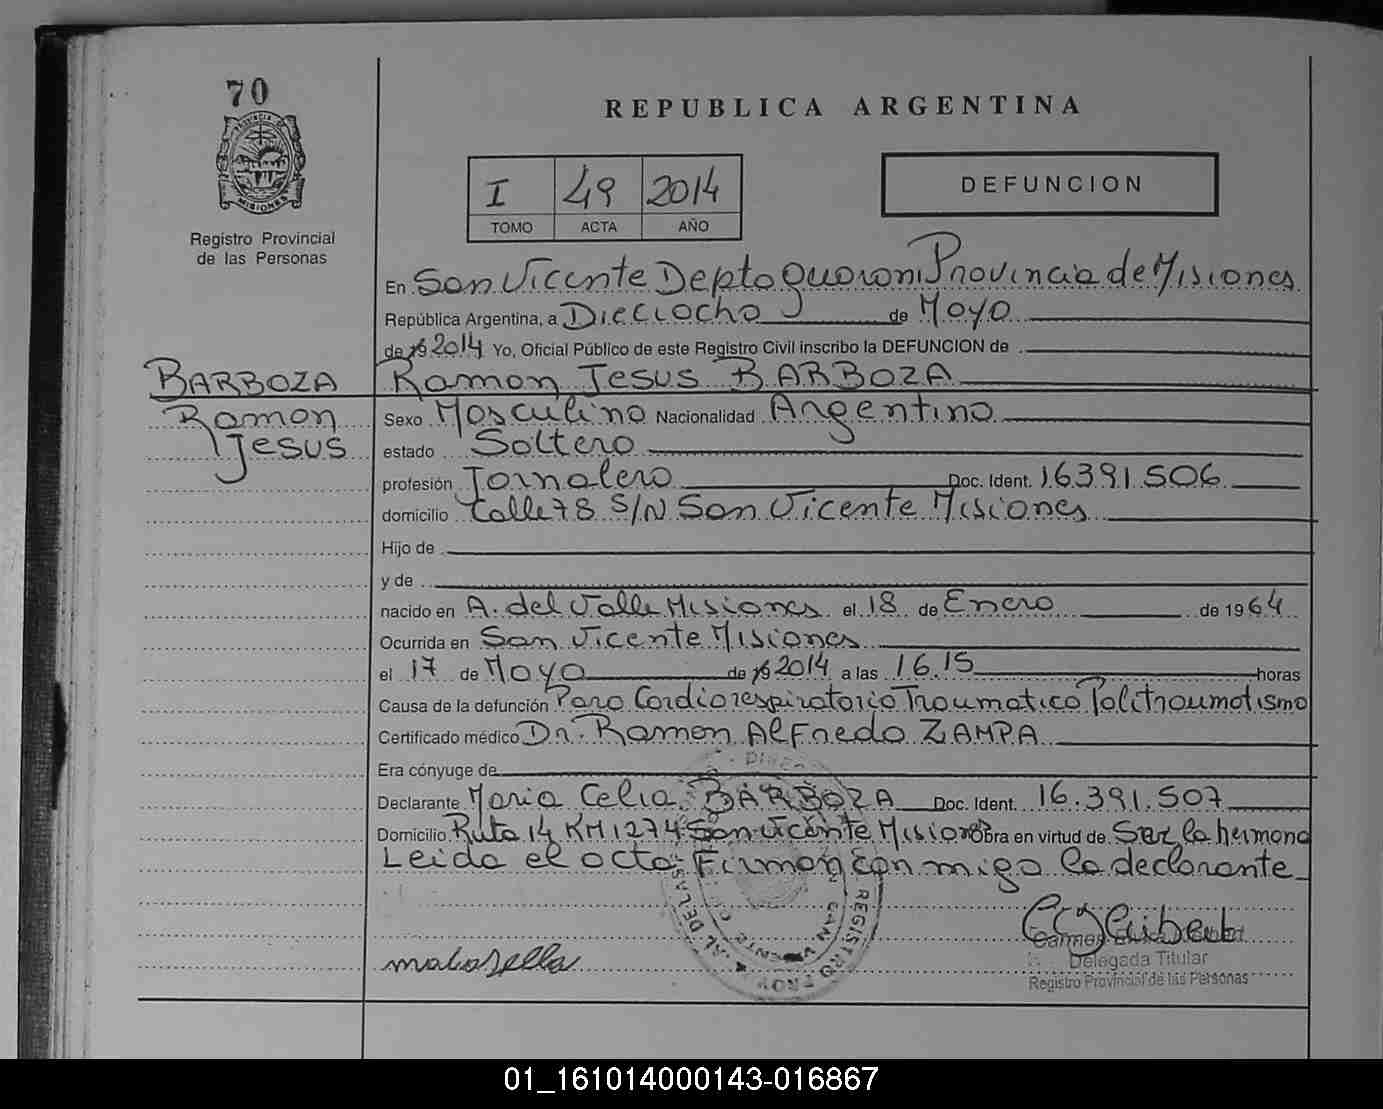 70
PROVINCIA DE
MISIONES
Registro Provincial
de las Personas
REPUBLICA ARGENTINA
I 49 2014
TOMO ACTA AÑO
DEFUNCION
En San Vicente Depto Guarani Provincia de Misiones
República Argentina, a Dieciocho de Mayo
de 19 2014 Yo, Oficial Público de este Registro Civil inscribo la DEFUNCION de
BARBOZA Ramon Jesus BARBOZA
Ramon Sexo Masculino Nacionalidad Argentino
Jesus estado Soltero
profesión Jornalero Doc. Ident. 16.391.506
domicilio Calle 78 S/N San Vicente Misiones
Hijo de
y de
nacido en A. del Valle Misiones el 18 de Enero de 1964
Ocurrida en San Vicente Misiones
el 17 de Mayo de 19 2014 a las 16.15 horas
Causa de la defunción Paro Cardiorespiratorio Traumatico Politraumatismo
Certificado médico Dr. Ramon Alfredo ZAMPA
Era cónyuge de
Declarante Maria Celia BARBOZA Doc. Ident. 16.391.507
Domicilio Ruta 14 KM 1274 San Vicente Misiones Obra en virtud de Ser la hermana
Leida el acta Firman con migo la declarante
Delegada Titular
Registro Provincial de las Personas
01_161014000143-016867